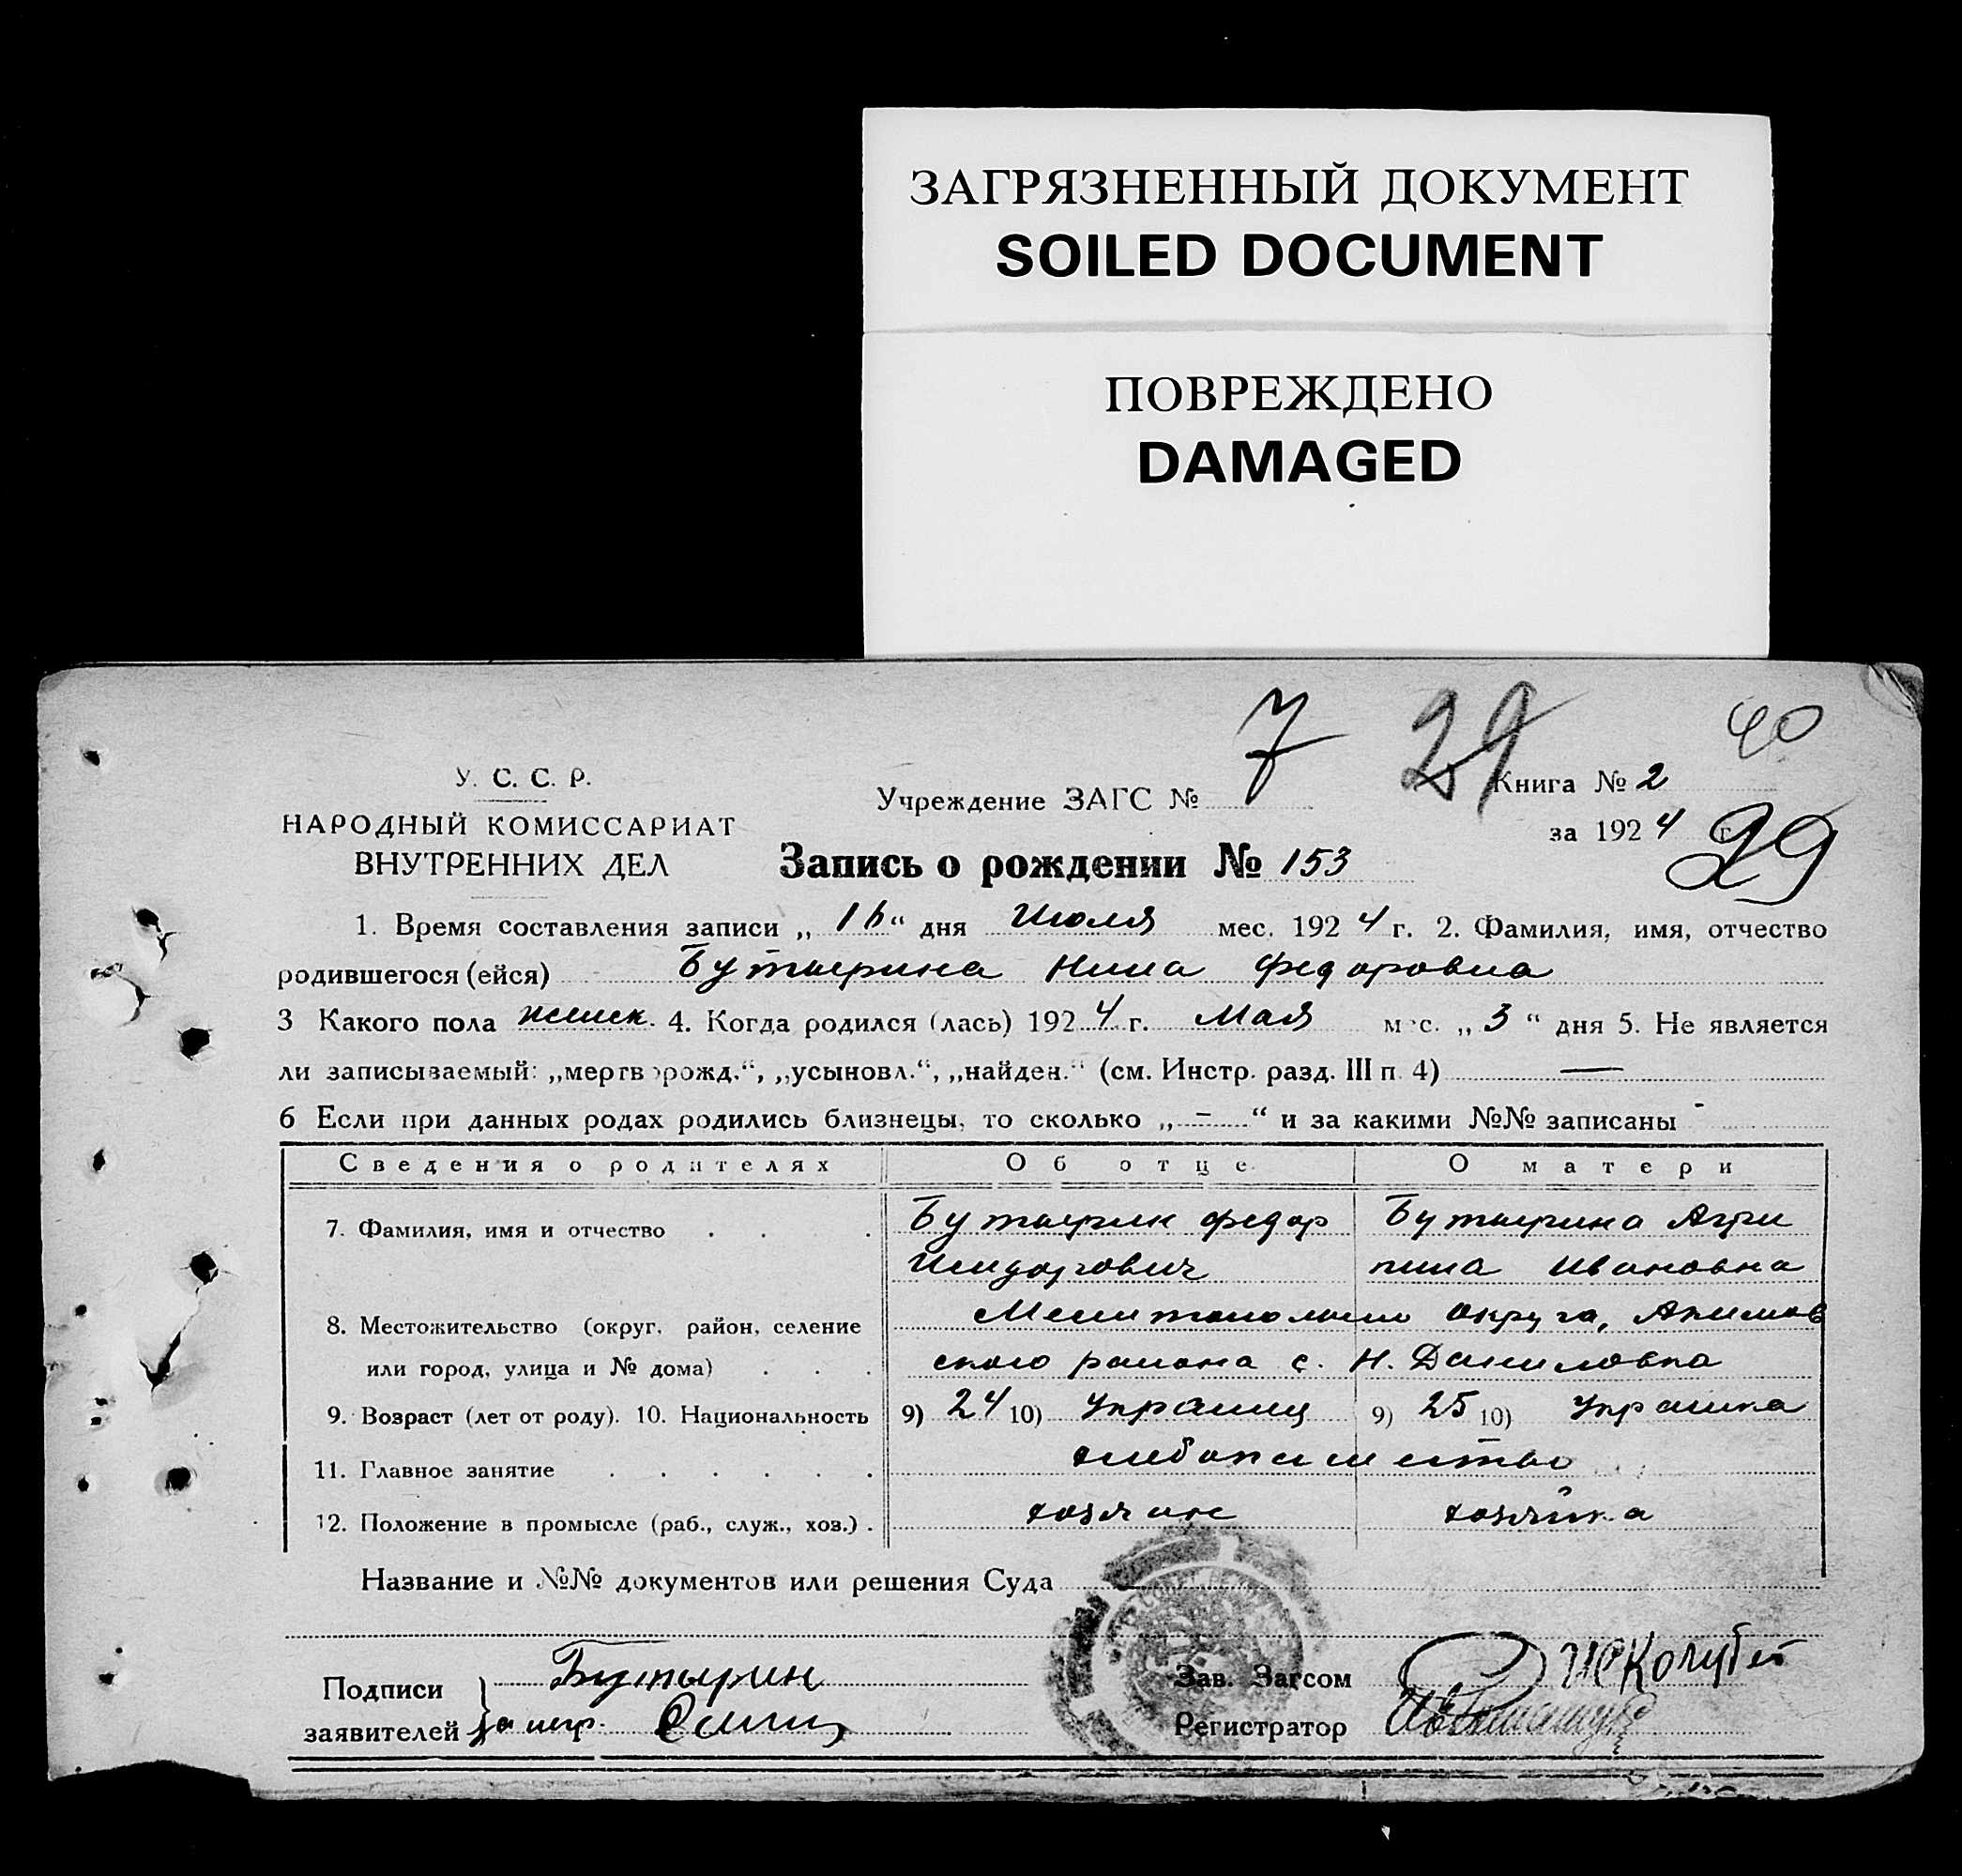 ЗАГРЯЗНЕННЫЙ ДОКУМЕНТ
SOILED DOCUMENT
ПОВРЕЖДЕНО
DAMAGED
7 29 40
У. С. С. Р.
Учреждение ЗАГС №
Книга № 2
НАРОДНЫЙ КОМИССАРИАТ
за 1924 г. 29
ВНУТРЕННИХ ДЕЛ
Запись о рождении № 153
1. Время составления записи „ “ дня Июля мес. 1924 г. 2. Фамилия, имя, отчество
родившегося (ейся) Бутырина Нина Федоровна
3 Какого пола женск. 4. Когда родился (лась) 1924 г. Мая мес. „ 3 “ дня 5. Не является
ли записываемый: „мертворожд.“, „усыновл.“, „найден.“ (см. Инстр. разд. III п. 4) —
6 Если при данных родах родились близнецы, то сколько „ – “ и за какими №№ записаны -
Сведения о родителях Об отце О матери
7. Фамилия, имя и отчество . . . Бутырин Федор Бутырина Агри
Исидорович пина Ивановна
8. Местожительство (округ, район, селение Мелитопольск округа, Акимов
или город, улица и № дома) . . . ского района с. Н. Даниловка
9. Возраст (лет от роду). 10. Национальность 9) 24 10) Украинец 9) 25 10) Украинка
11. Главное занятие . . . . . . хлебопашество
12. Положение в промысле (раб., служ., хоз.) . хозяин хозяйка
Название и №№ документов или решения Суда
Подписи Бутырин Зав. Загсом
заявителей Регистратор